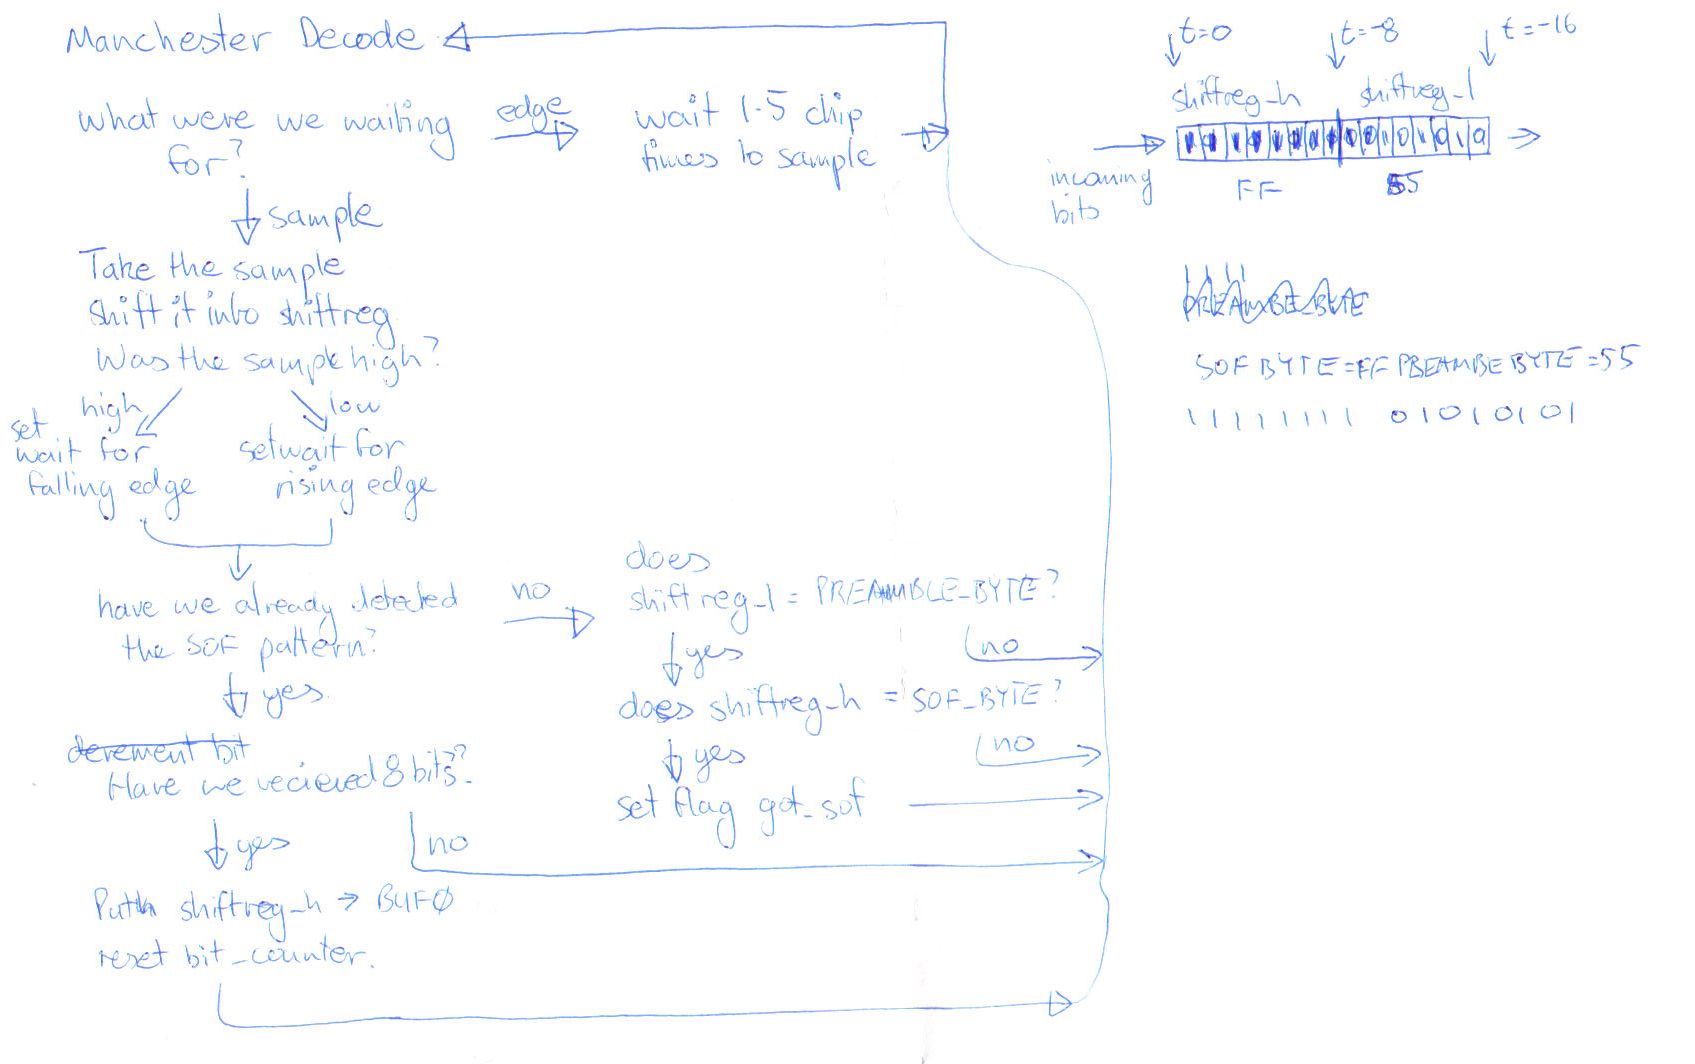 Manchester Decode
what were we waiting
for?
edge
wait 1.5 chip
times to sample
sample
Take the sample
shift it into shiftreg
Was the sample high?
high
low
set
wait for
falling edge
set wait for
rising edge
have we already detected
the SOF pattern?
no
yes
does
shiftreg_l = PREAMBLE_BYTE?
yes
no
does shiftreg_h = SOF_BYTE?
yes
no
set flag got_sof
derement bit
Have we recieved 8 bits?
yes
no
Put shiftreg_h → BUF0
reset bit_counter.
t=0
t=-8
t=-16
shiftreg_h
shiftreg_l
incoming
bits
FF
55
PREAMBE_BYTE
SOF BYTE=FF PREAMBE BYTE=55
1 1 1 1 1 1 1 1 0 1 0 1 0 1 0 1